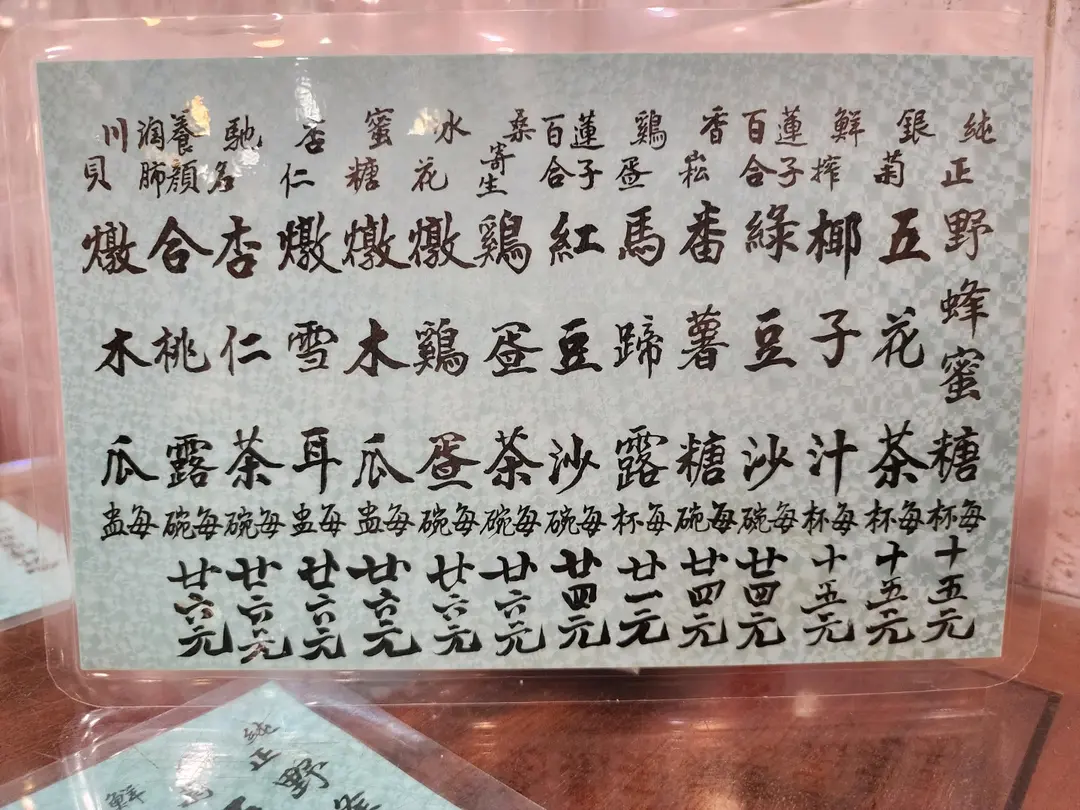 純正野蜂蜜糖每杯十五元
銀菊五花茶每杯十五元
鮮榨椰子汁每杯十五元
蓮子百合綠豆沙每碗廿四元
香崧番薯糖每碗廿四元
鷄蛋馬蹄露每杯廿一元
蓮子百合紅豆沙每碗廿四元
桑寄生鷄蛋茶每碗廿六元
冰花燉鷄蛋每碗廿六元
蜜糖燉木瓜每盅廿六元
杏仁燉雪耳每盅廿六元
馳名杏仁茶每碗廿六元
養顏潤肺合桃露每碗廿六元
川貝燉木瓜每盅
純正野
鮮